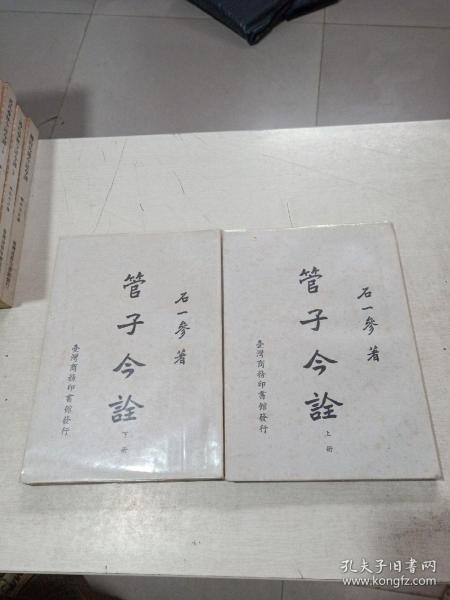 石一參著
管子今詮
下册
臺灣商務印書館發行
石一參著
管子今詮
上册
臺灣商務印書館發行
孔夫子旧书网
www.kongfz.com